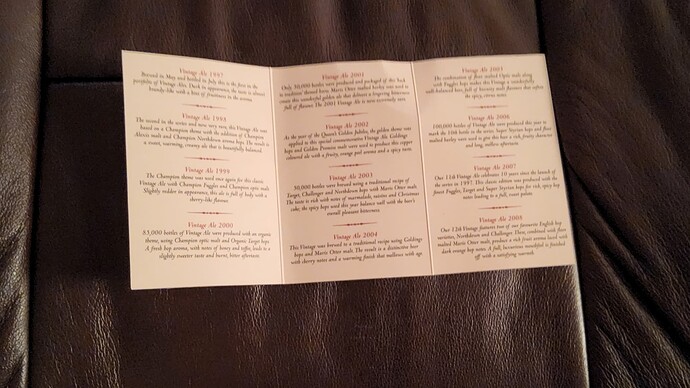 Vintage Ale 1997
Brewed in May and bottled in July this is the first in the
portfolio of Vintage Ales. Dark in appearance, the taste is almost
brandy-like with a hint of fruitiness in the aroma
Vintage Ale 1998
The second in the series and now very rare, this Vintage Ale was
based on a Champion theme with the addition of Champion
Alexis malt and Champion Northdown aroma hops. The result is
a roast, warming, creamy ale that is beautifully balanced.
Vintage Ale 1999
The Champion theme was used once again for this classic
Vintage Ale with Champion Fuggles and Champion optic malt.
Slightly redder in appearance, this ale is full of body with a
cherry-like flavour.
Vintage Ale 2000
85,000 bottles of Vintage Ale were produced with an organic
theme, using Champion optic malt and Organic Target hops.
A fresh hop aroma, with notes of honey and toffee, leads to a
slightly sweeter taste and burnt, bitter aftertaste.
Vintage Ale 2001
Only 50,000 bottles were produced and packaged of this
in tradition themed brew. Maris Otter malted barley was used to
create this wonderful golden ale that delivers a lingering bitterness
full of flavour. The 2001 Vintage Ale is now extremely rare.
Vintage Ale 2002
As the year of the Queen's Golden Jubilee, the golden theme was
applied to this special commemorative Vintage Ale. Goldings
hops and Golden Promise malt were used to produce this copper
coloured ale with a fruity, orange peel aroma and a spicy note.
Vintage Ale 2003
50,000 bottles were brewed using a traditional recipe of
Target, Challenger and Northdown hops with Maris Otter malt.
The taste is rich with notes of marmalade, raisins and Christmas
cake, the spicy hops used this year balance well with the beer's
overall pleasant bitterness.
Vintage Ale 2004
This Vintage was brewed to a traditional recipe using Goldings
hops and Maris Otter malt. The result is a distinctive beer
with cherry notes and a warming finish that mellows with age.
Vintage Ale 2005
The combination of floor malted Optic malt along
with Fuggles hops makes this Vintage a wonderfully
well-balanced beer, full of biscuity malt flavours that soften
the spicy, citrus notes.
Vintage Ale 2006
100,000 bottles of Vintage Ale were produced this year to
mark the 10th bottle in the series. Super Styrian hops and floor
malted barley were used to give this beer a rich fruity character
and long, mellow aftertaste.
Vintage Ale 2007
Our 11th Vintage Ale celebrates 10 years since the launch of
the series in 1997. This classic edition was produced with the
finest Fuggles, Target and Super Styrian hops for rich, spicy hop
notes leading to a full, roast palate.
Vintage Ale 2008
Our 12th Vintage features two of our favourite English hop
varieties, Northdown and Challenger. These, combined with floor
malted Maris Otter malt, produce a rich fruit aroma laced with
dark orange hop notes. A full, luxurious mouthful is finished
off with a satisfying warmth.